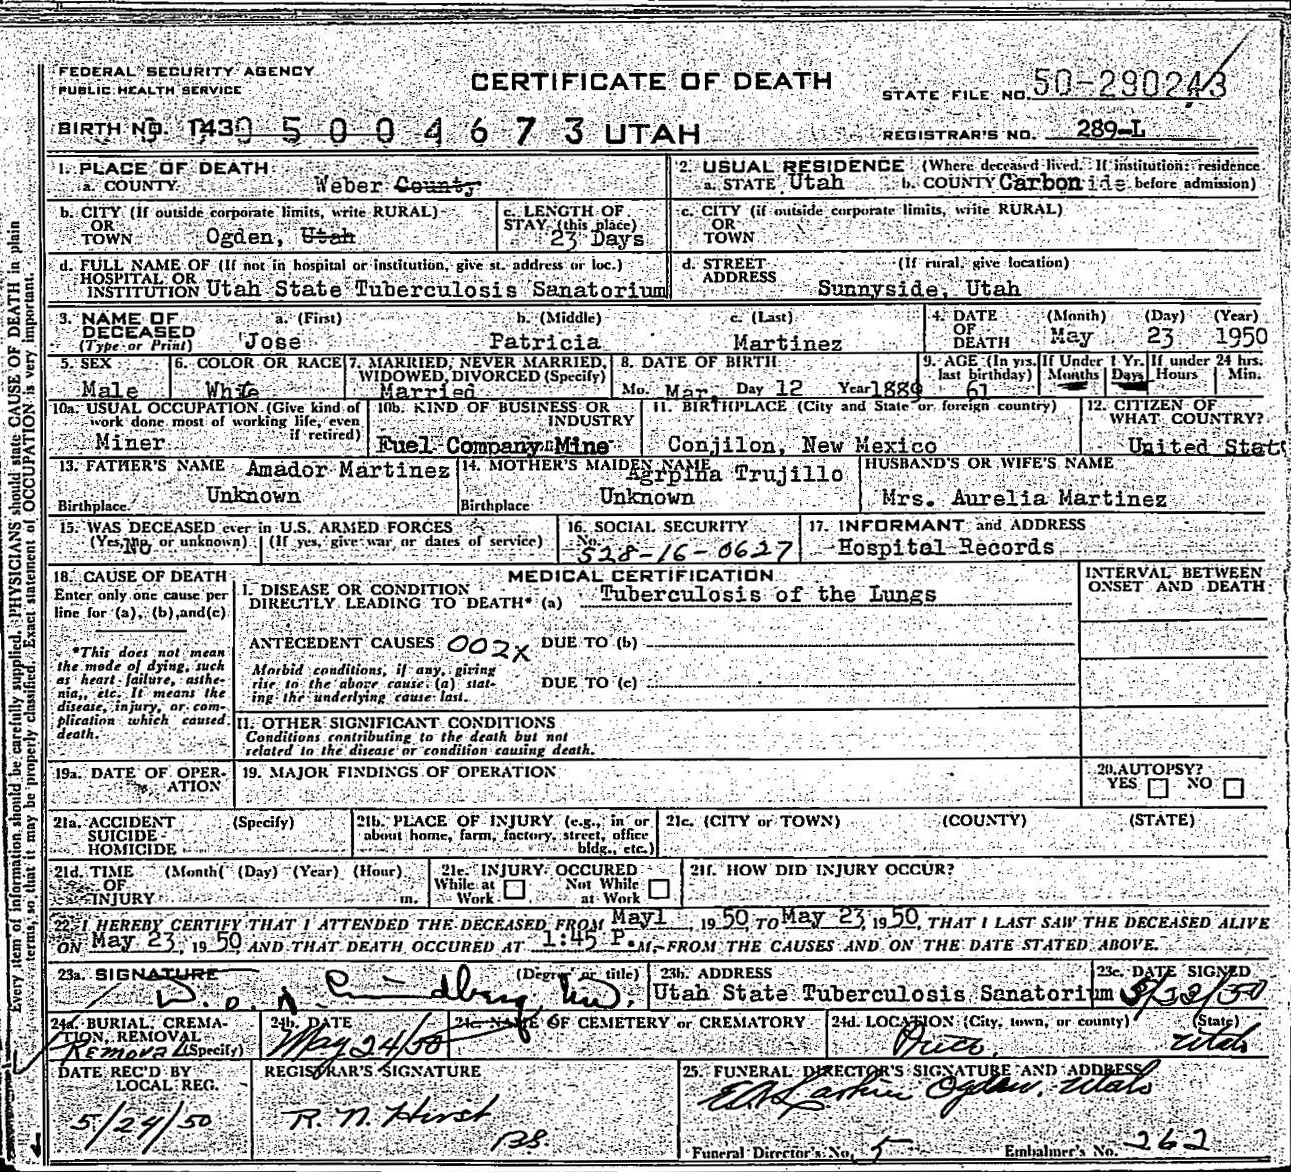 FEDERAL SECURITY AGENCY
PUBLIC HEALTH SERVICE
CERTIFICATE OF DEATH
STATE FILE NO. 50-290243
BIRTH NO. 1430 5004673 UTAH
REGISTRAR'S NO. 289-L
1. PLACE OF DEATH
a. COUNTY Weber County
2. USUAL RESIDENCE (Where deceased lived. If institution: residence
a. STATE Utah b. COUNTY Carbon before admission)
b. CITY (If outside corporate limits, write RURAL)
OR
TOWN Ogden, Utah
c. LENGTH OF
STAY (this place)
23 Days
c. CITY (if outside corporate limits, write RURAL)
OR
TOWN
d. FULL NAME OF (If not in hospital or institution, give st. address or loc.)
HOSPITAL OR
INSTITUTION Utah State Tuberculosis Sanatorium
d. STREET (If rural, give location)
ADDRESS
Sunnyside, Utah
3. NAME OF a. (First) b. (Middle) c. (Last)
DECEASED
(Type or Print) Jose Patricia Martinez
4. DATE (Month) (Day) (Year)
OF
DEATH May 23 1950
5. SEX
Male
6. COLOR OR RACE
White
7. MARRIED, NEVER MARRIED,
WIDOWED, DIVORCED (Specify)
Married
8. DATE OF BIRTH
Mo. Mar. Day 12 Year 1889
9. AGE (In yrs. If Under 1 Yr. If under 24 hrs.
last birthday) Months Days Hours Min.
61
10a. USUAL OCCUPATION (Give kind of
work done most of working life, even
if retired)
Miner
10b. KIND OF BUSINESS OR
INDUSTRY
Fuel Company Mine
11. BIRTHPLACE (City and State or foreign country)
Conjilon, New Mexico
12. CITIZEN OF
WHAT COUNTRY?
United State
13. FATHER'S NAME Amador Martinez
Birthplace. Unknown
14. MOTHER'S MAIDEN NAME
Agrpina Trujillo
Birthplace Unknown
HUSBAND'S OR WIFE'S NAME
Mrs. Aurelia Martinez
15. WAS DECEASED ever in U.S. ARMED FORCES
(Yes, no, or unknown) (If yes, give war or dates of service)
No
16. SOCIAL SECURITY
No.
528-16-0627
17. INFORMANT and ADDRESS
Hospital Records
18. CAUSE OF DEATH
Enter only one cause per
line for (a), (b), and (c)
*This does not mean
the mode of dying, such
as heart failure, asthe-
nia, etc. It means the
disease, injury, or com-
plication which caused
death.
MEDICAL CERTIFICATION
I. DISEASE OR CONDITION
DIRECTLY LEADING TO DEATH* (a) Tuberculosis of the Lungs
ANTECEDENT CAUSES 002X DUE TO (b)
Morbid conditions, if any, giving
rise to the above cause (a) stat-
ing the underlying cause last.
DUE TO (c)
II. OTHER SIGNIFICANT CONDITIONS
Conditions contributing to the death but not
related to the disease or condition causing death.
INTERVAL BETWEEN
ONSET AND DEATH
19a. DATE OF OPER-
ATION
19. MAJOR FINDINGS OF OPERATION
20. AUTOPSY?
YES NO
21a. ACCIDENT (Specify)
SUICIDE
HOMICIDE
21b. PLACE OF INJURY (e.g., in or
about home, farm, factory, street, office
bldg., etc.)
21c. (CITY or TOWN) (COUNTY) (STATE)
21d. TIME (Month) (Day) (Year) (Hour)
OF
INJURY m.
21e. INJURY OCCURED
While at Not While
Work at Work
21f. HOW DID INJURY OCCUR?
22. I HEREBY CERTIFY THAT I ATTENDED THE DECEASED FROM May1, 1950 TO May 23, 1950, THAT I LAST SAW THE DECEASED ALIVE
ON May 23, 1950 AND THAT DEATH OCCURED AT 1:45 P.M., FROM THE CAUSES AND ON THE DATE STATED ABOVE.
23a. SIGNATURE (Degree or title)
23b. ADDRESS
Utah State Tuberculosis Sanatorium
23c. DATE SIGNED
5/23/50
24a. BURIAL, CREMA-
TION, REMOVAL
Removal (Specify)
24b. DATE
May 24/50
24c. NAME OF CEMETERY or CREMATORY
24d. LOCATION (City, town, or county) (State)
Price, Utah
DATE REC'D BY
LOCAL REG.
5/24/50
REGISTRAR'S SIGNATURE
R. N. Hirst
25. FUNERAL DIRECTOR'S SIGNATURE AND ADDRESS
Larkin Ogden, Utah
Funeral Director's No. 5 Embalmer's No. 262
Every item of information should be carefully supplied. PHYSICIANS should state CAUSE OF DEATH in plain
terms, so that it may be properly classified. Exact statement of OCCUPATION is very important.